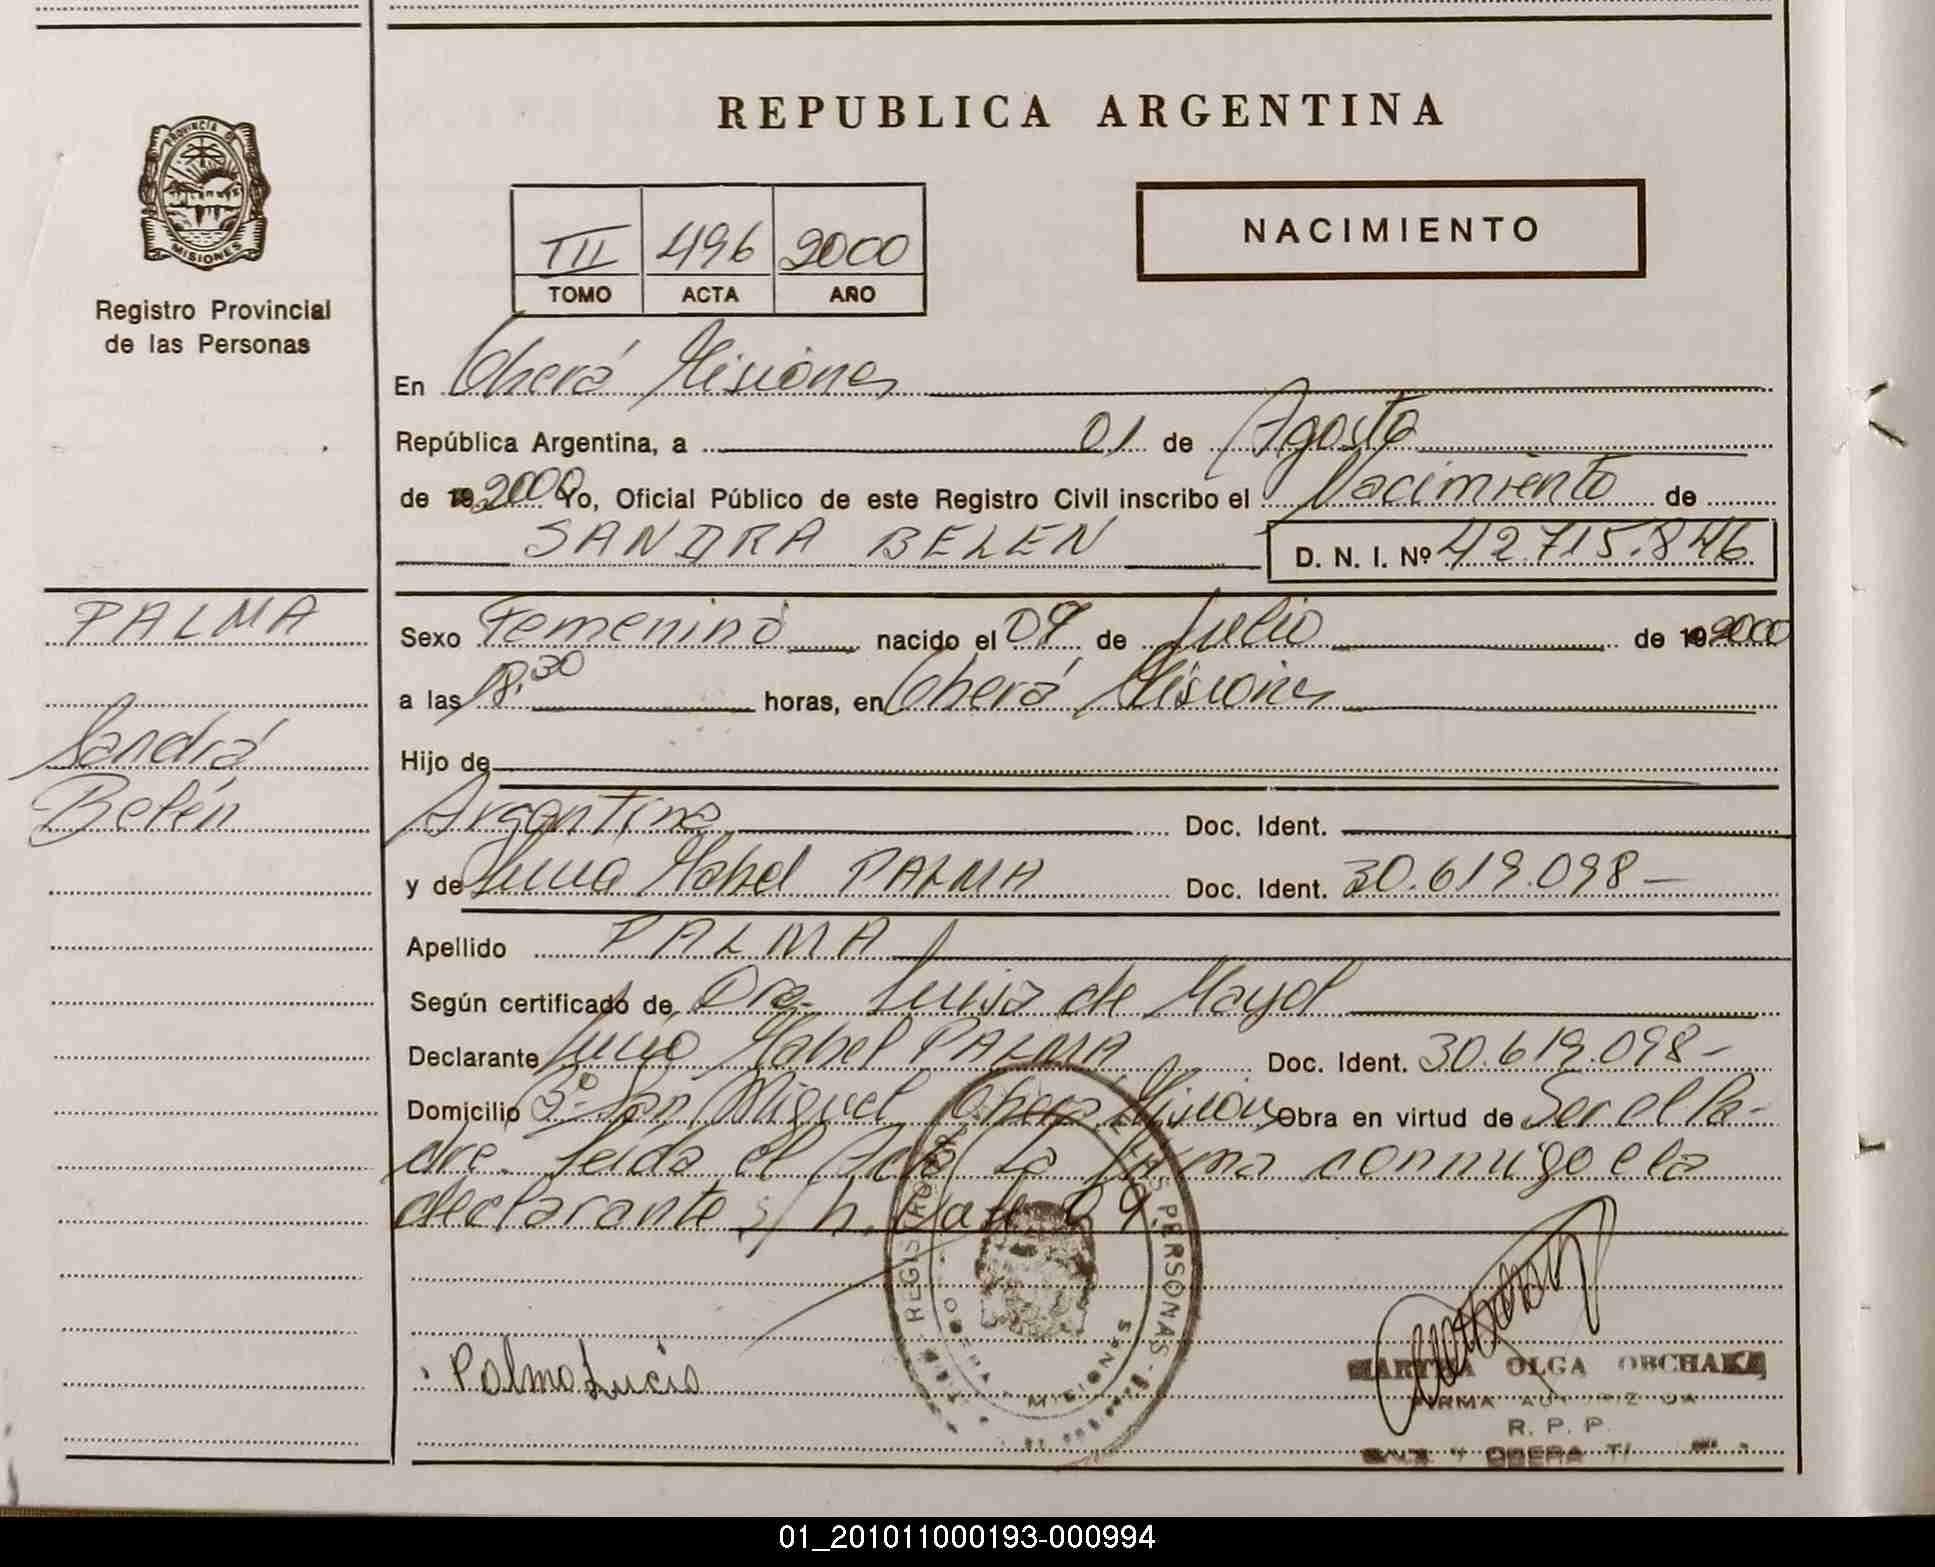 REPUBLICA ARGENTINA
PROVINCIA DE
MISIONES
Registro Provincial
de las Personas
NACIMIENTO
III 496 2000
TOMO ACTA AÑO
En Oberá Misiones
República Argentina, a 01 de Agosto
de 2000 Yo, Oficial Público de este Registro Civil inscribo el Nacimiento de
SANDRA BELEN D. N. I. Nº 42.715.846
PALMA
Sandra
Belén
Sexo Femenino nacido el 09 de Julio de 2000
a las 18.30 horas, en Oberá Misiones
Hijo de
Argentina Doc. Ident.
y de Lucia Mabel PALMA Doc. Ident. 30.619.098-
Apellido PALMA
Según certificado de Dra. Luisa de Mayol
Declarante Lucia Mabel PALMA Doc. Ident. 30.619.098-
Domicilio Bº San Miguel Oberá Misiones Obra en virtud de Ser el Pa-
dre. Leída el Acta La firma conmigo la
declarante s/h. Vale 09.
REGISTRO PERSONAS
OBERA MISIONES
Palma Lucia
MARTHA OLGA OBCHAKA
FIRMA AUTORIZADA
R. P. P.
OBERA
01_201011000193-000994